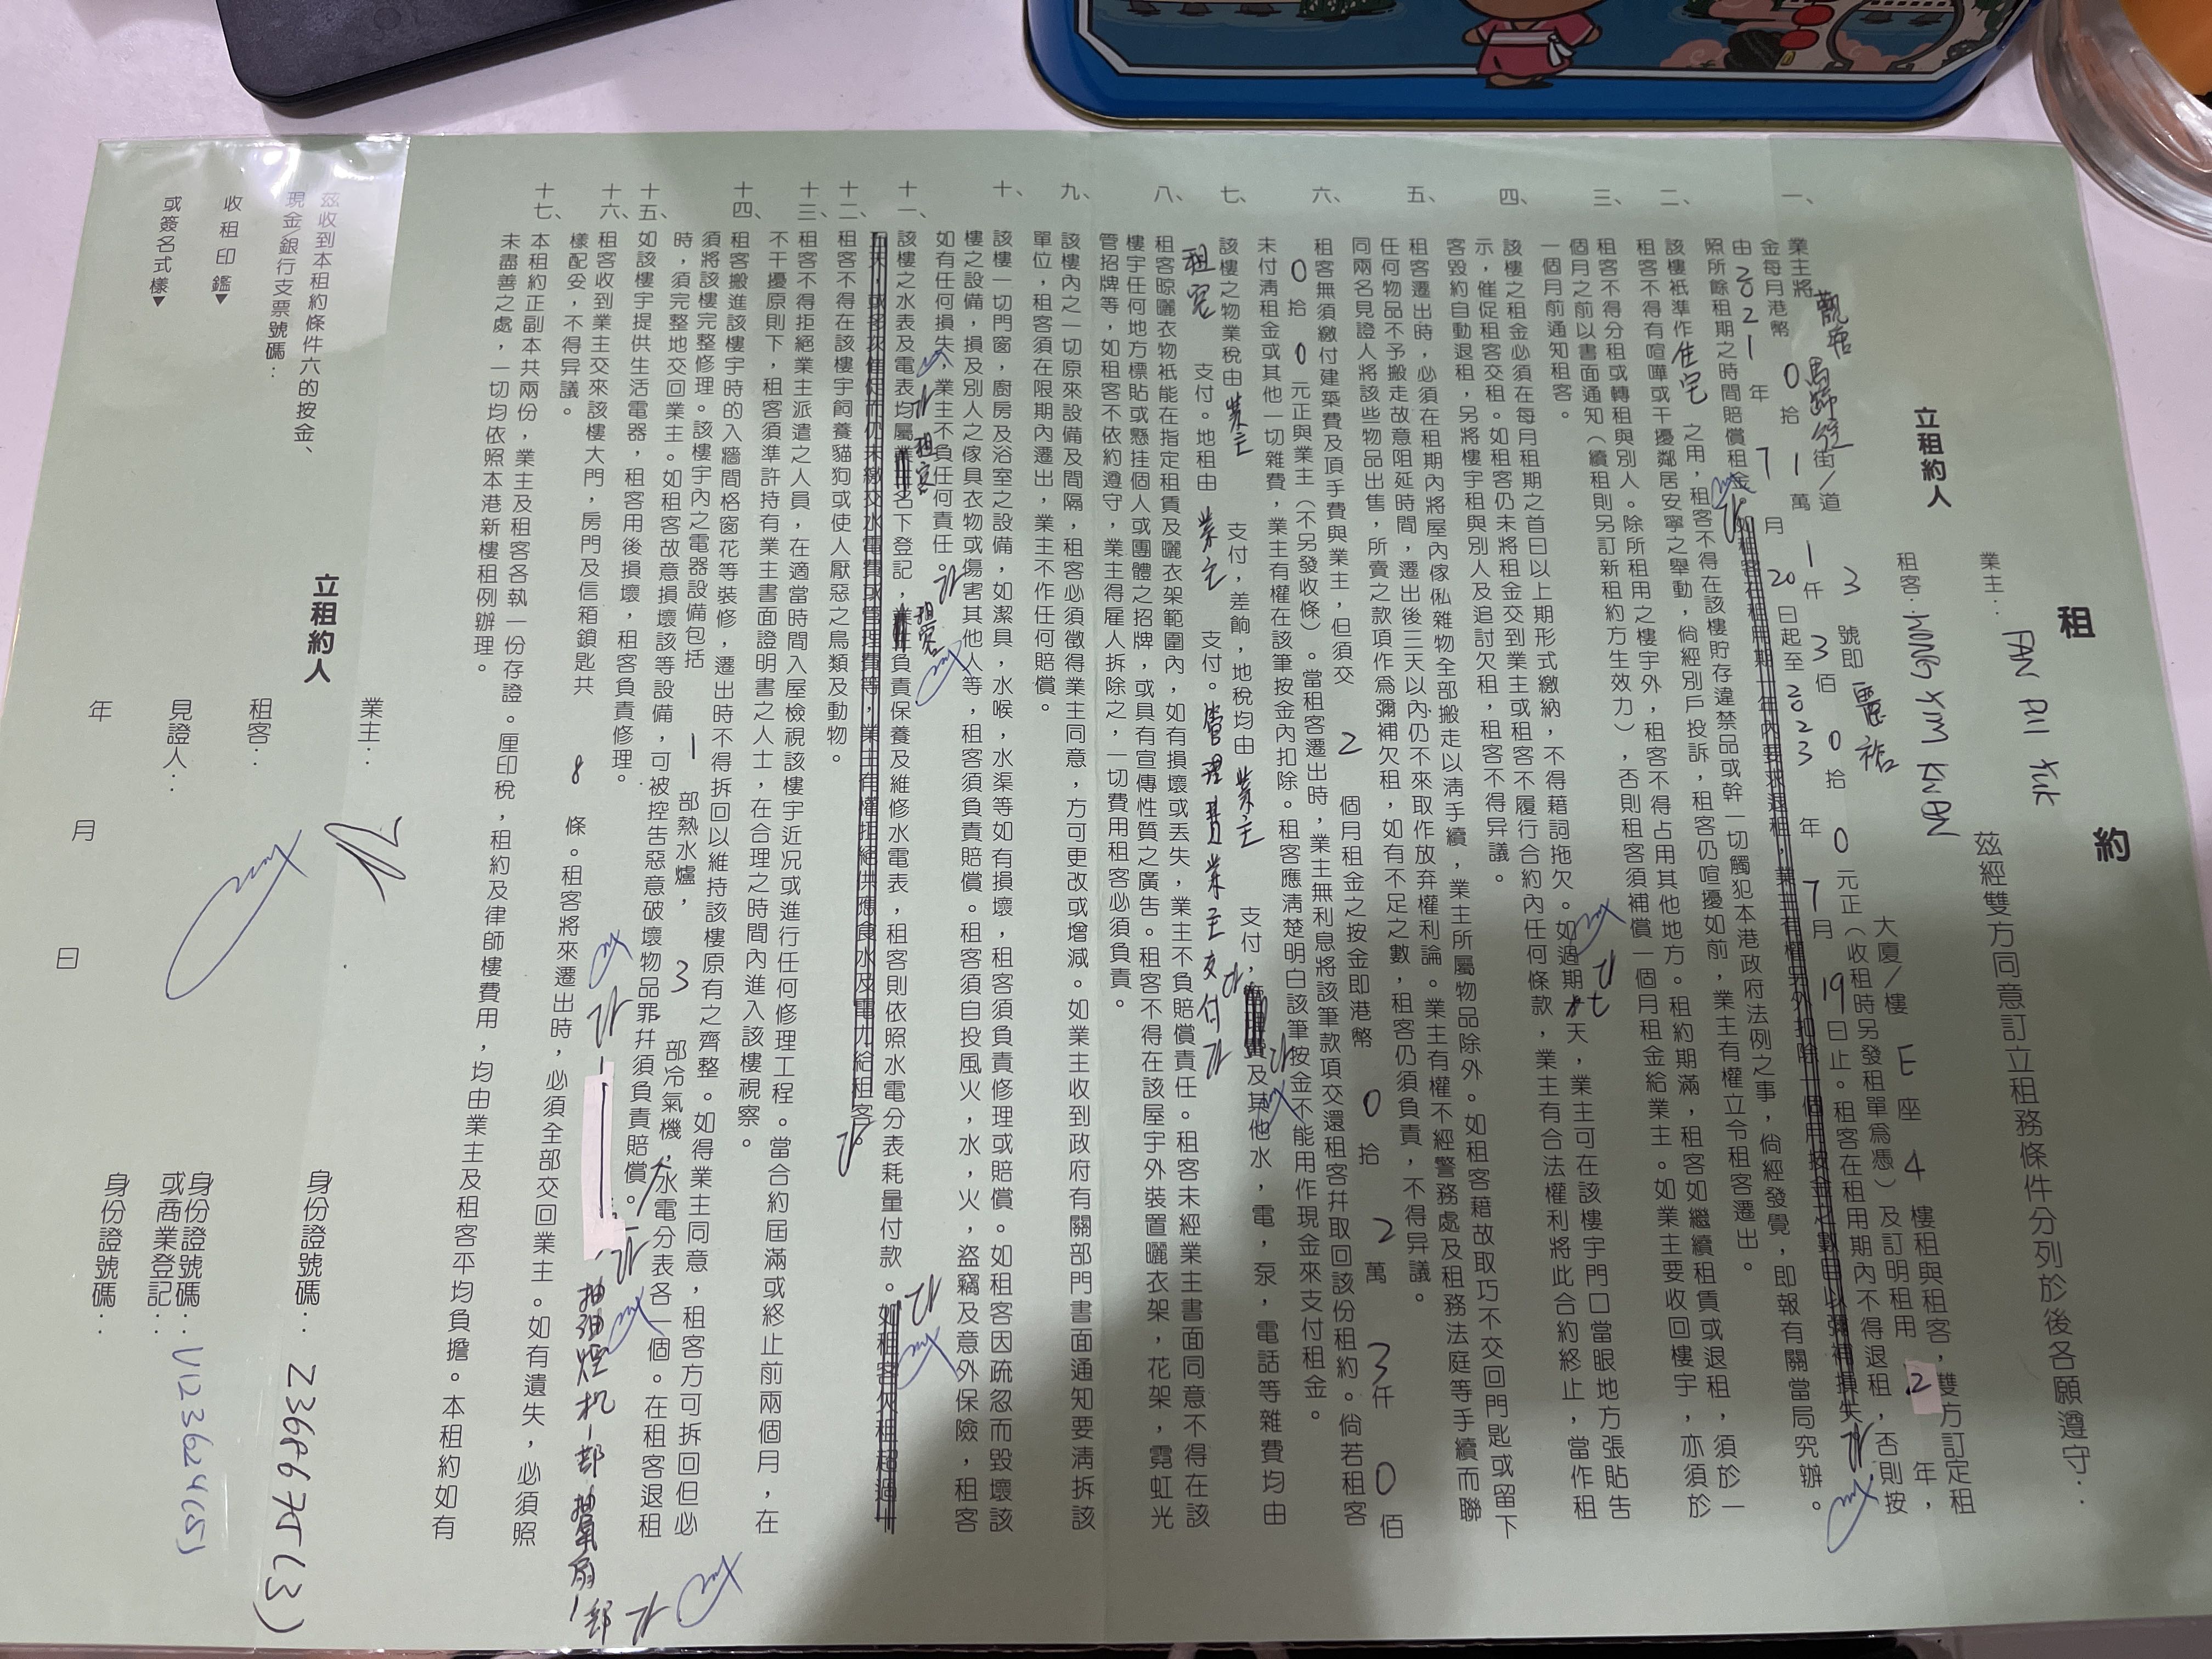 租約
立租約人
業主：
租客：
茲經雙方同意訂立租務條件分列於後各願遵守：
一、業主將 觀塘 馬蹄徑 街/道 3 號即 麗裕 大廈/樓 E 座 4 樓租與租客，雙方訂定租
金每月港幣 0 拾 1 萬 1 仟 3 佰 0 拾 0 元正（收租時另發租單為憑）及訂明租用 2 年，
由 2021 年 7 月 20 日起至 2023 年 7 月 19 日止。租客在租用期內不得退租，否則按
照所餘租期之時間賠償租金。如租客在租用期一年內要求退租，業主有權另外扣除一個月按金之數目以彌補損失
二、該樓祇準作 住宅 之用，租客不得在該樓貯存違禁品或幹一切觸犯本港政府法例之事，倘經發覺，即報有關當局究辦。
租客不得有喧嘩或干擾鄰居安寧之舉動，倘經別戶投訴，租客仍喧擾如前，業主有權立令租客遷出。
三、租客不得分租或轉租與別人。除所租用之樓宇外，租客不得占用其他地方。租約期滿，租客如繼續租賃或退租，須於一
個月之前以書面通知（續租則另訂新租約方生效力），否則租客須補償一個月租金給業主。如業主要收回樓宇，亦須於
一個月前通知租客。
四、該樓之租金必須在每月租期之首日以上期形式繳納，不得藉詞拖欠。如過期 七 天，業主可在該樓宇門口當眼地方張貼告
示，催促租客交租。如租客仍未將租金交到業主或租客不履行合約內任何條款，業主有合法權利將此合約終止，當作租
客毀約自動退租，另將樓宇租與別人及追討欠租，租客不得异議。
五、租客遷出時，必須在租期內將屋內傢俬雜物全部搬走以清手續，業主所屬物品除外。如租客藉故取巧不交回門匙或留下
任何物品不予搬走故意阻延時間，遷出後三天以內仍不來取作放弃權利論。業主有權不經警務處及租務法庭等手續而聯
同兩名見證人將該些物品出售，所賣之款項作為彌補欠租，如有不足之數，租客仍須負責，不得异議。
六、租客無須繳付建築費及頂手費與業主，但須交 2 個月租金之按金即港幣 0 拾 2 萬 3 仟 0 佰
0 拾 0 元正與業主（不另發收條）。當租客遷出時，業主無利息將該筆款項交還租客幷取回該份租約。倘若租客
未付清租金或其他一切雜費，業主有權在該筆按金內扣除。租客應清楚明白該筆按金不能用作現金來支付租金。
七、該樓之物業稅由 業主 支付，差餉，地稅均由 業主 支付，管理費及其他水，電，泵，電話等雜費均由
租客 支付。地租由 業主 支付。管理費業主支付
八、租客晾曬衣物祇能在指定租賃及曬衣架範圍內，如有損壞或丟失，業主不負賠償責任。租客未經業主書面同意不得在該
樓宇任何地方標貼或懸挂個人或團體之招牌，或具有宣傳性質之廣告。租客不得在該屋宇外裝置曬衣架，花架，霓虹光
管招牌等，如租客不依約遵守，業主得雇人拆除之，一切費用租客必須負責。
九、該樓內之一切原來設備及間隔，租客必須徵得業主同意，方可更改或增減。如業主收到政府有關部門書面通知要淸拆該
單位，租客須在限期內遷出，業主不作任何賠償。
十、該樓一切門窗，廚房及浴室之設備，如潔具，水喉，水渠等如有損壞，租客須負責修理或賠償。如租客因疏忽而毀壞該
樓之設備，損及別人之傢具衣物或傷害其他人等，租客須負責賠償。租客須自投風火，水，火，盜竊及意外保險，租客
如有任何損失，業主不負任何責任。
十一、該樓之水表及電表均屬 租客 名下登記， 租客 負責保養及維修水電表，租客則依照水電分表耗量付款。如租客欠租超過
五天，或多次催促而仍未繳交水電費或管理費等，業主有權拒絕供應食水及電力給租客。
十二、租客不得在該樓宇飼養貓狗或使人厭惡之鳥類及動物。
十三、租客不得拒絕業主派遣之人員，在適當時間入屋檢視該樓宇近況或進行任何修理工程。當合約屆滿或終止前兩個月，在
不干擾原則下，租客須準許持有業主書面證明書之人士，在合理之時間內進入該樓視察。
十四、租客搬進該樓宇時的入牆間格窗花等裝修，遷出時不得拆回以維持該樓原有之齊整。如得業主同意，租客方可拆回但必
須將該樓完整修理。該樓宇內之電器設備包括 1 部熱水爐， 3 部冷氣機，水電分表各一個。在租客退租
時，須完整地交回業主。如租客故意損壞該等設備，可被控告惡意破壞物品罪幷須負責賠償。
十五、如該樓宇提供生活電器，租客用後損壞，租客負責修理。 抽油煙机一部 抽氣扇1部
十六、租客收到業主交來該樓大門，房門及信箱鎖匙共 8 條。租客將來遷出時，必須全部交回業主。如有遺失，必須照
樣配妥，不得异議。
十七、本租約正副本共兩份，業主及租客各執一份存證。厘印稅，租約及律師樓費用，均由業主及租客平均負擔。本租約如有
未盡善之處，一切均依照本港新樓租例辦理。
立租約人
業主：
身份證號碼：
租客：
身份證號碼：
或商業登記：
V123624(5)
見證人：
身份證號碼：
年 月 日
茲收到本租約條件六的按金、
現金/銀行支票號碼：
收租印鑑▼
或簽名式樣▼